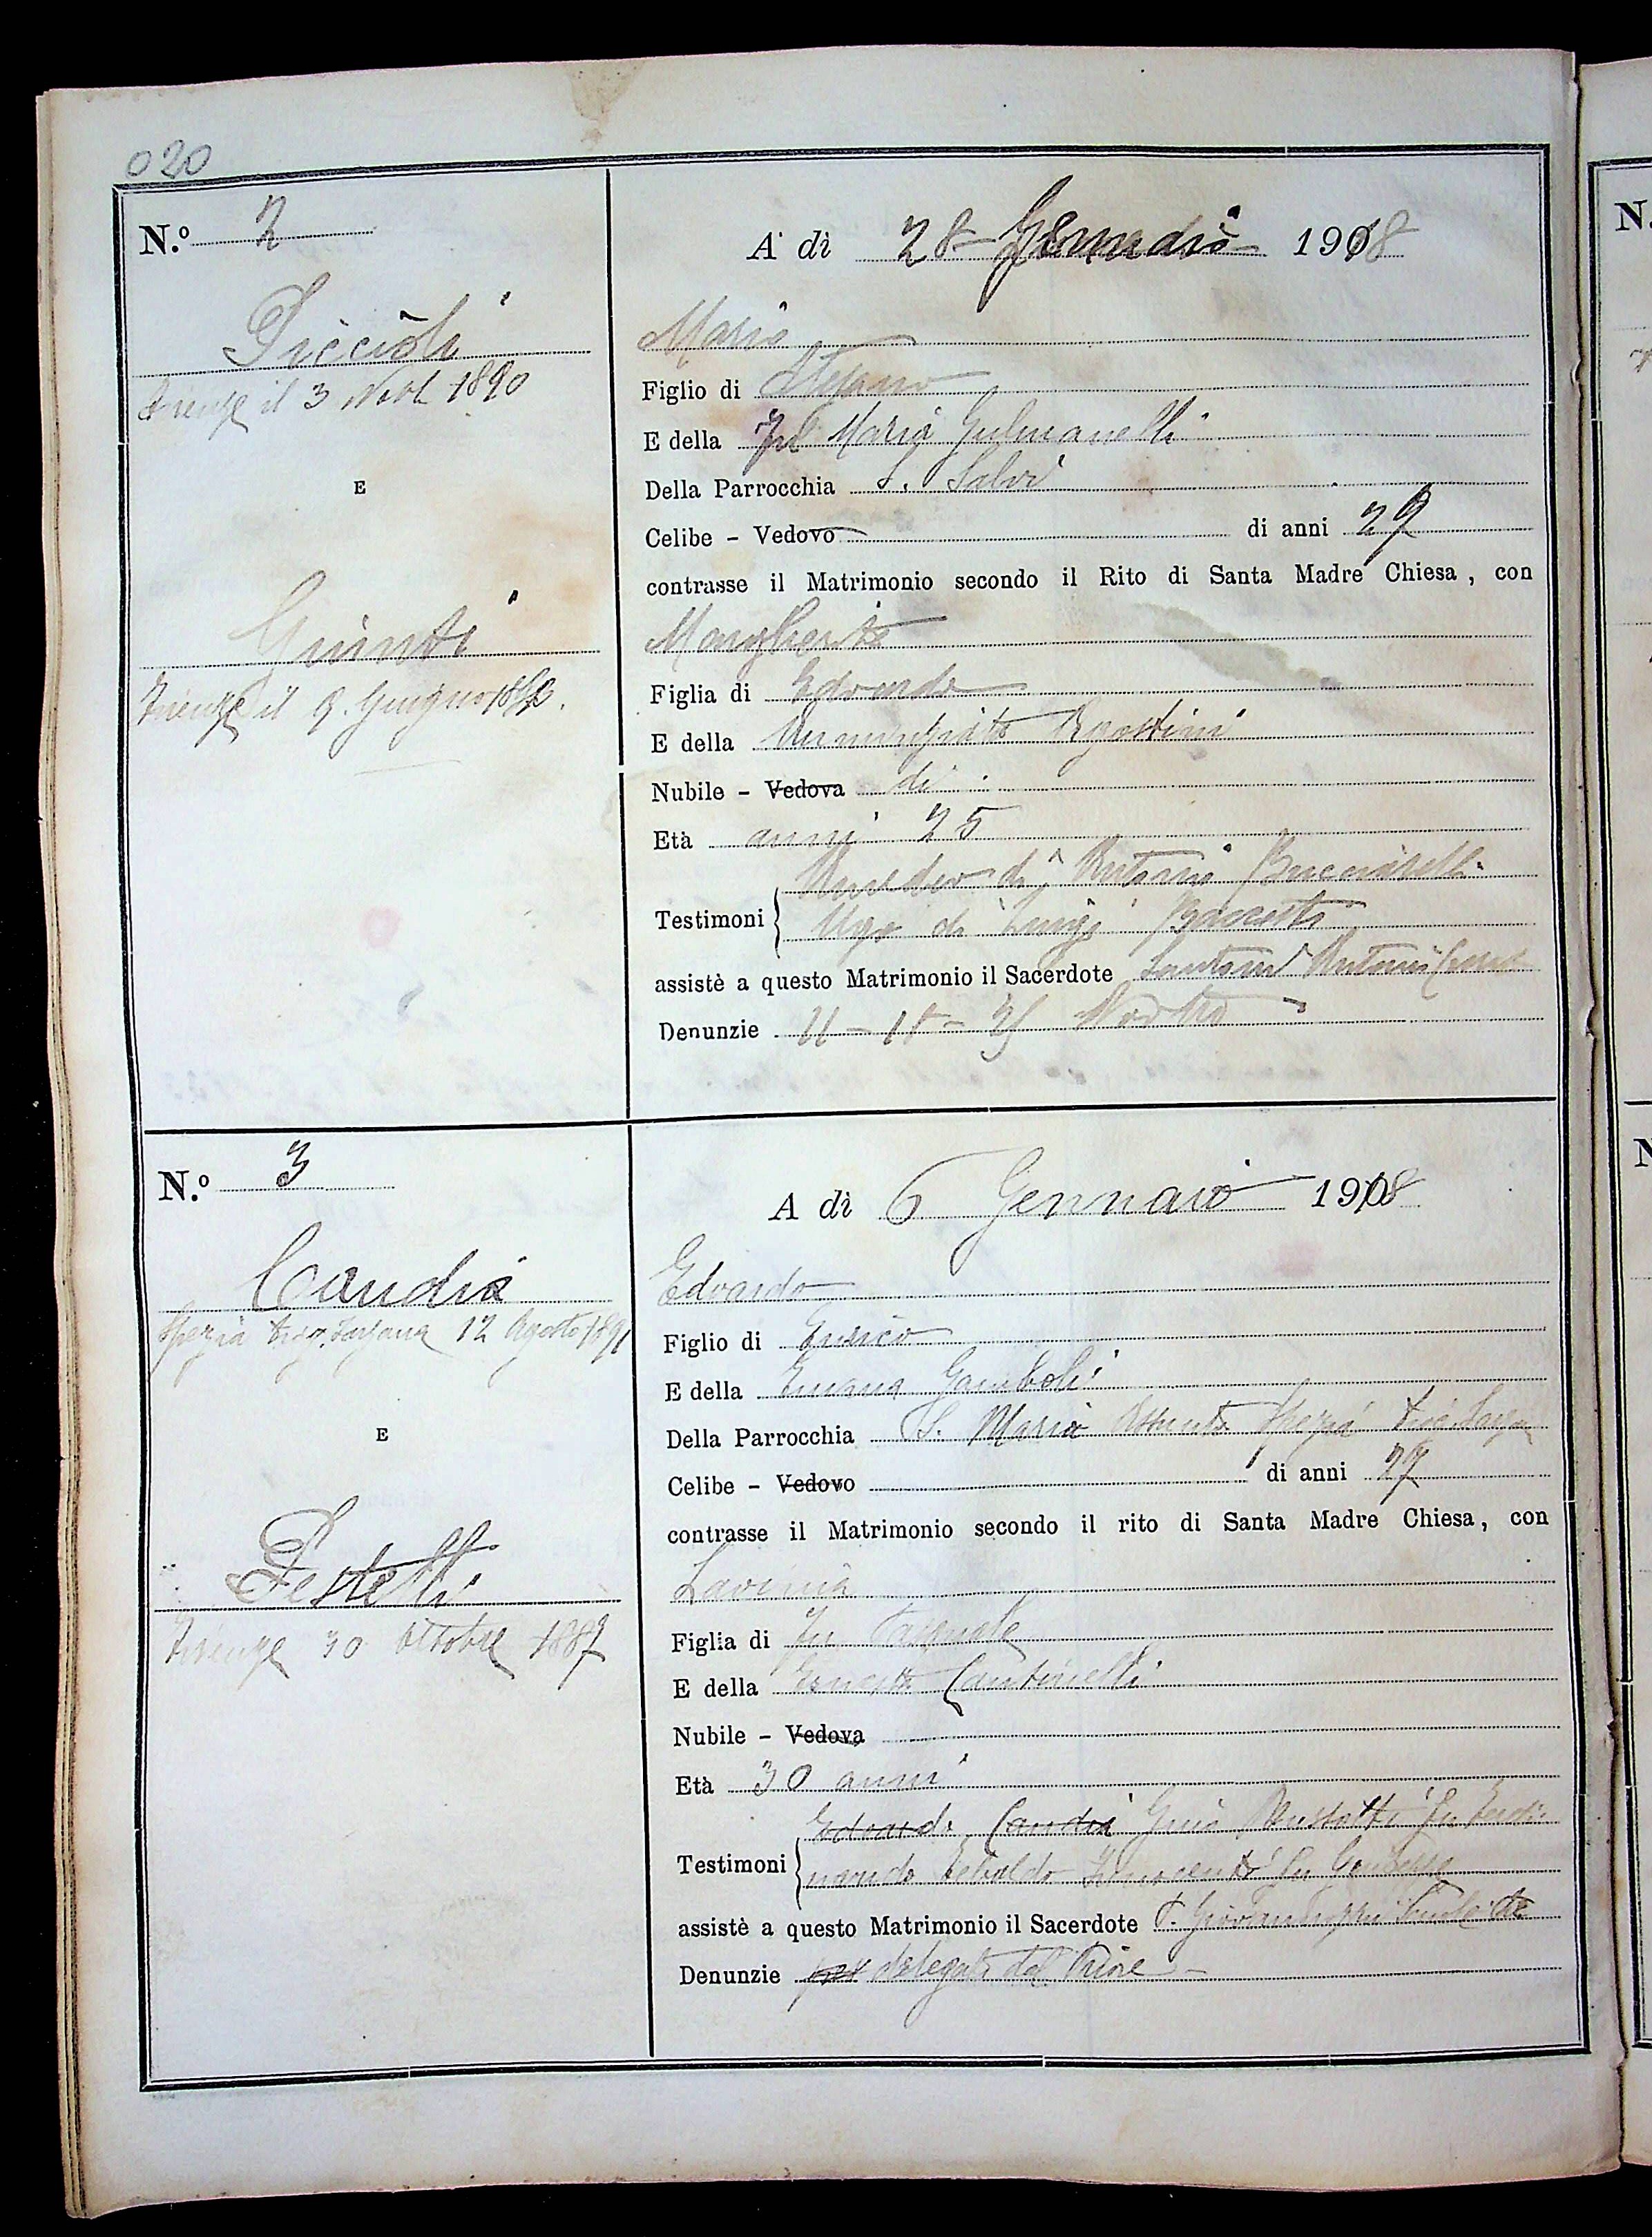 020
N.º 2
A dì 28 Gennaio 1918
Piccioli
Firenze il 3 Nov 1890
E
Giunti
Firenze il 9. Giugno
Mario
Figlio di Stefano
E della Maria
Della Parrocchia S. Salvi
Celibe - Vedovo di anni 29
contrasse il Matrimonio secondo il Rito di Santa Madre Chiesa, con
Margherita
Figlia di Edoardo
E della Annunziata Agostini
Nubile - Vedova di
Età anni 25
Amedeo di Antonio Bucciarelli
Testimoni Ugo di Luigi
assistè a questo Matrimonio il Sacerdote Antonio
Denunzie 11 - 18 - 25
N.º 3
A dì 6 Gennaio 1918
Caudia
Spezia 12 Agosto 1891
E
Pestelli
Firenze 30 Ottobre 1887
Edoardo
Figlio di Enrico
E della Emma Gamboli
Della Parrocchia S. Maria Assunta Spezia
Celibe - Vedovo di anni 27
contrasse il Matrimonio secondo il rito di Santa Madre Chiesa, con
Lavinia
Figlia di fu Pasquale
E della Ernesta Cantinelli
Nubile - Vedova
Età 30 anni
Edoardo Caudia Gino fu Ferdi
Testimoni nando Tebaldo Innocenti fu Giuseppe
assistè a questo Matrimonio il Sacerdote P.
Denunzie delegato dal Priore